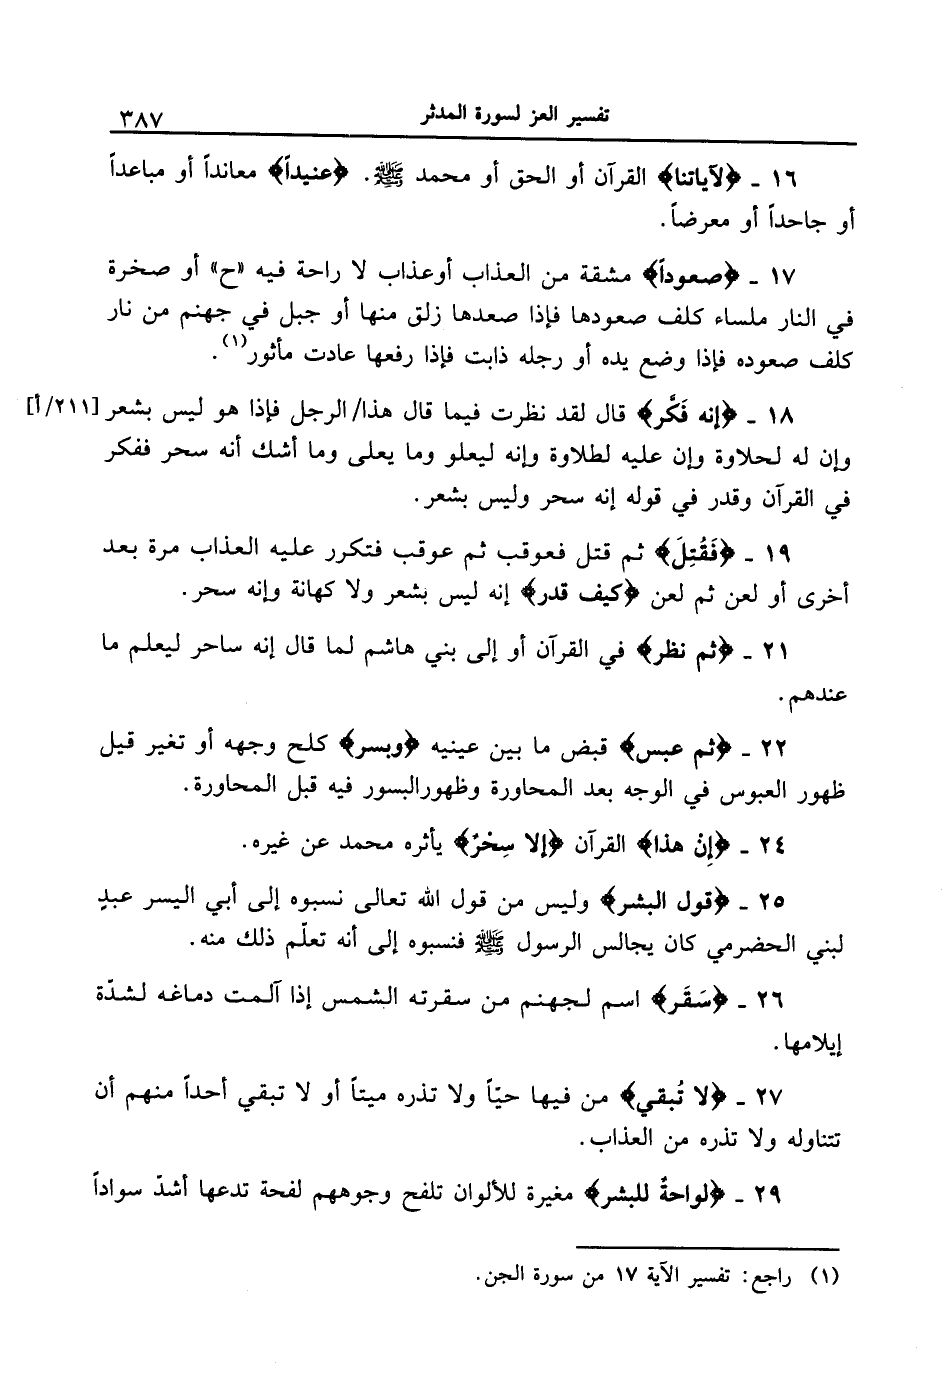 تفسير العز لسورة المدثر ٣٨٧
١٦ ـ ﴿لآياتنا﴾ القرآن أو الحق أو محمد ﷺ. ﴿عنيداً﴾ معانداً أو مباعداً
أو جاحداً أو معرضاً.
١٧ ـ ﴿صعوداً﴾ مشقة من العذاب أوعذاب لا راحة فيه «ح» أو صخرة
في النار ملساء كلف صعودها فإذا صعدها زلق منها أو جبل في جهنم من نار
كلف صعوده فإذا وضع يده أو رجله ذابت فإذا رفعها عادت مأثور(١).
١٨ ـ ﴿إنه فَكَّر﴾ قال لقد نظرت فيما قال هذا/ الرجل فإذا هو ليس بشعر [٢١١/أ]
وإن له لحلاوة وإن عليه لطلاوة وإنه ليعلو وما يعلى وما أشك أنه سحر ففكر
في القرآن وقدر في قوله إنه سحر وليس بشعر.
١٩ ـ ﴿فَقُتِلَ﴾ ثم قتل فعوقب ثم عوقب فتكرر عليه العذاب مرة بعد
أخرى أو لعن ثم لعن ﴿كيف قدر﴾ إنه ليس بشعر ولا كهانة وإنه سحر.
٢١ ـ ﴿ثم نظر﴾ في القرآن أو إلى بني هاشم لما قال إنه ساحر ليعلم ما
عندهم.
٢٢ ـ ﴿ثم عبس﴾ قبض ما بين عينيه ﴿وبسر﴾ كلح وجهه أو تغير قيل
ظهور العبوس في الوجه بعد المحاورة وظهورالبسور فيه قبل المحاورة.
٢٤ ـ ﴿إِنْ هذا﴾ القرآن ﴿إلا سِحْرٌ﴾ يأثره محمد عن غيره.
٢٥ ـ ﴿قول البشر﴾ وليس من قول الله تعالى نسبوه إلى أبي اليسر عبدٍ
لبني الحضرمي كان يجالس الرسول ﷺ فنسبوه إلى أنه تعلّم ذلك منه.
٢٦ ـ ﴿سَقَر﴾ اسم لجهنم من سقرته الشمس إذا آلمت دماغه لشدّة
إيلامها.
٢٧ ـ ﴿لا تُبقي﴾ من فيها حيّاً ولا تذره ميتاً أو لا تبقي أحداً منهم أن
تتناوله ولا تذره من العذاب.
٢٩ ـ ﴿لواحةٌ للبشر﴾ مغيرة للألوان تلفح وجوههم لفحة تدعها أشدّ سواداً
(١) راجع: تفسير الآية ١٧ من سورة الجن.